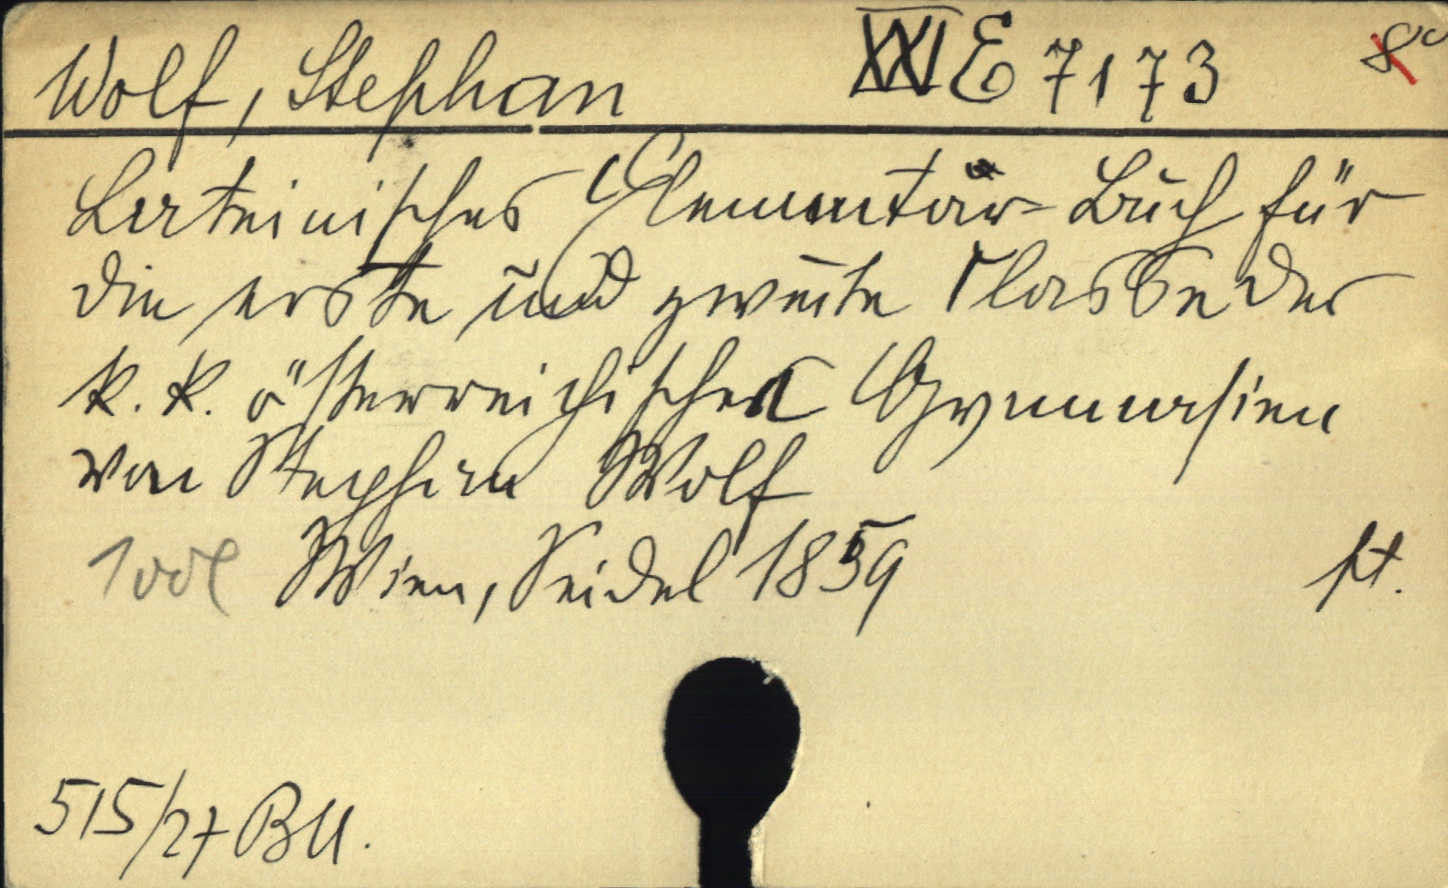 Wolf, Stephan XXI E 7173 8°
Lateinisches Elementar-Buch für
die erste und zweite Classe der
k. k. österreichischen Gymnasien
von Stephan Wolf
Wien, Seidel 1859
515/27 BU.